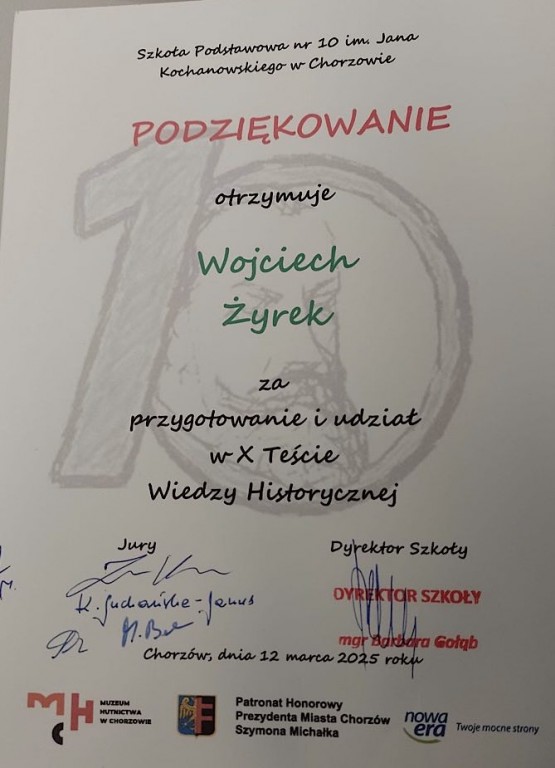 Szkoła Podstawowa nr 10 im. Jana
Kochanowskiego w Chorzowie
PODZIĘKOWANIE
otrzymuje
Wojciech
Żyrek
za
przygotowanie i udział
w X Teście
Wiedzy Historycznej
Jury
Dyrektor Szkoły
DYREKTOR SZKOŁY
mgr Barbara Gołąb
Chorzów, dnia 12 marca 2025 roku
MCH
MUZEUM
HUTNICTWA
W CHORZOWIE
Patronat Honorowy
Prezydenta Miasta Chorzów
Szymona Michałka
nowa
era
Twoje mocne strony